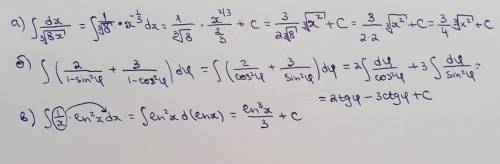 а) ∫ dx/∛(8x) = ∫ 1/∛8 * x^(-1/3) dx = 1/∛8 · x^(2/3)/(2/3) + C = 3/(2∛8) ∛(x²) + C = 3/(2·2) ∛(x²) + C = 3/4 ∛(x²) + C
б) ∫ (2/(1-sin²φ) + 3/(1-cos²φ)) dφ = ∫ (2/cos²φ + 3/sin²φ) dφ = 2∫ dφ/cos²φ + 3∫ dφ/sin²φ =
= 2tgφ - 3ctgφ + C
в) ∫ 1/x · ln²x dx = ∫ ln²x d(lnx) = ln³x/3 + C